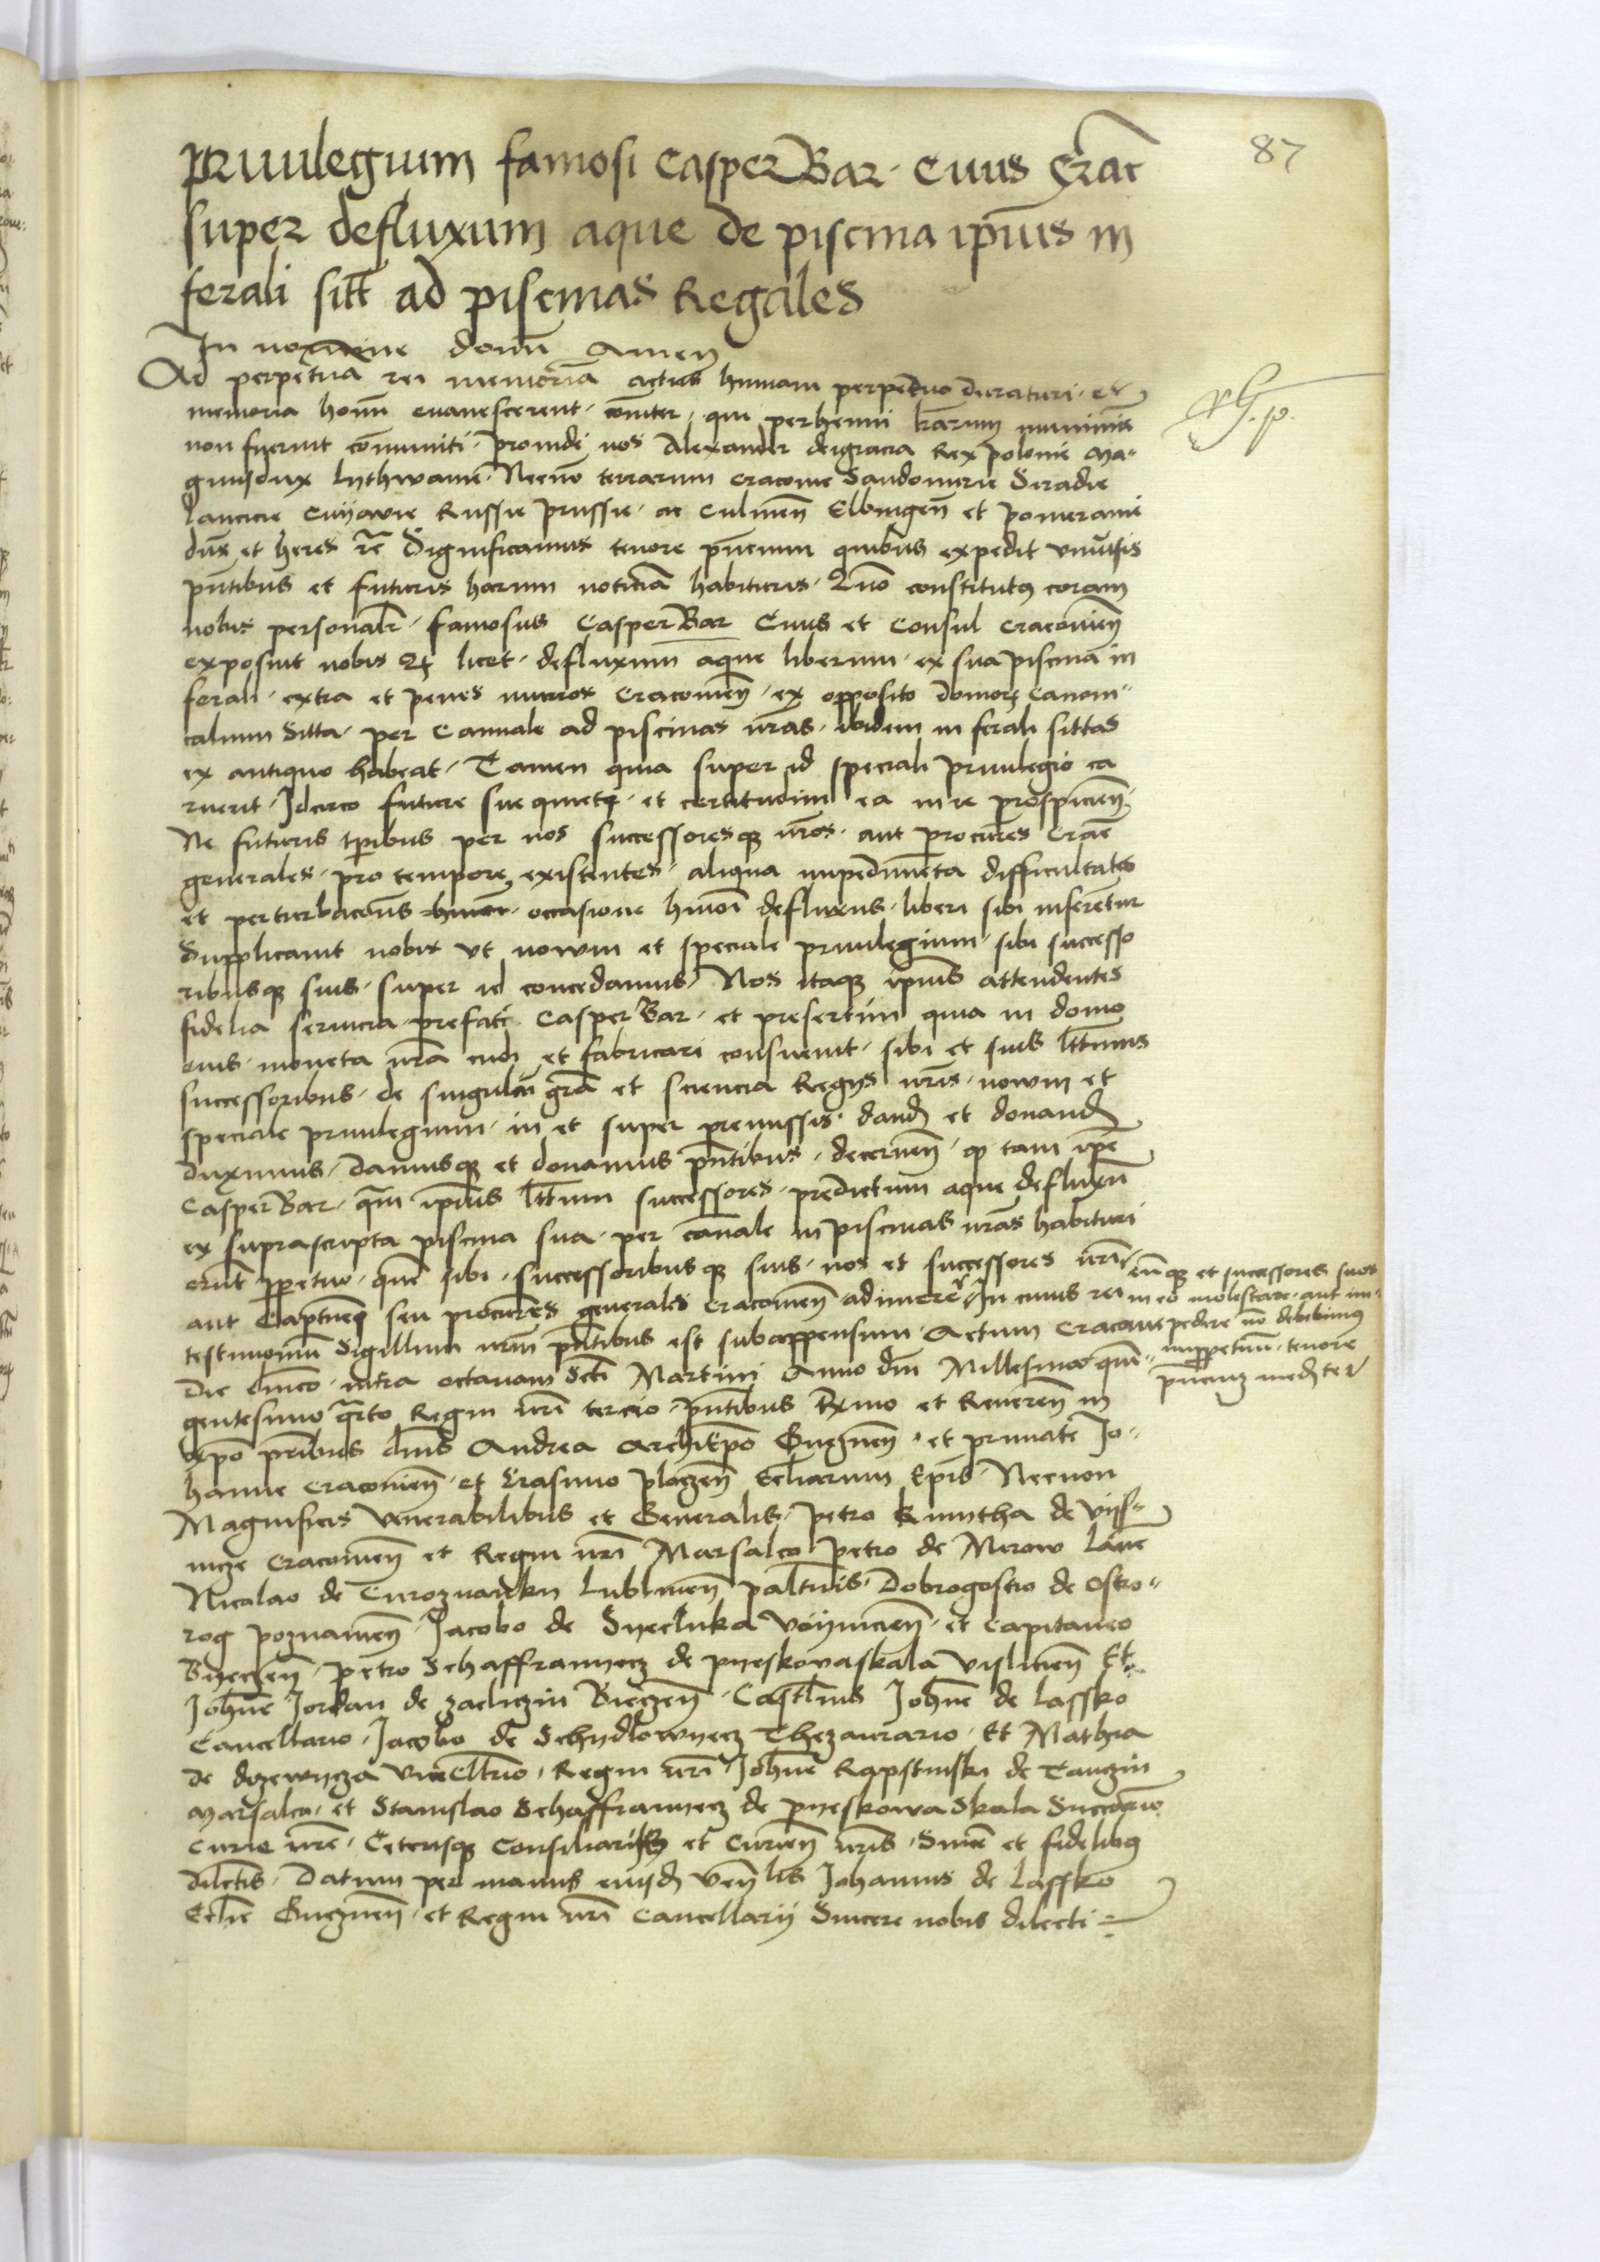 87
Priuilegium famosi Casper Bar Ciuis Crac
super defluxum aque de piscina ipius in
ferali sitt ad piscinas Regales
In nomine domi Amen
Ad perpetua rei memoriam actus humani perpetuo duraturi et
memoria homi euanescerent comiter qui perhenni lrarum munimie
non fuerint comuniti proinde nos Alexander dei gracia Rex polonie Ma-
gnusdux lythwanie Necno terrarum Cracouie Sandomirie Siradie
lancicie Cuyawie Russie prussie ac Culmen Elbingen et pomeranie
dux et heres rc Significamus tenore pncium quibus expedit vniusis
pntibus et futuris harum noticia habituris Quo constitutus coram
nobis personalr famosus Casper Bar Ciuis et Consul Cracouien
exposuit nobis Qz licet defluxum aque liberum ex sua piscina in
ferali extra et penes muros Cracouien ex opposito domorum Canoni-
calium Sitta per Cannale ad piscinas nras ibidem in ferali sittas
ex antiquo habeat Tamen quia super id speciali priuilegio ca
ruerit Idcirco future sue quieti et certitudini ea in re prospicien
Ne futuris tpribus per nos successoresque nros aut procures Crac
generales pro tempore existentes aliqua impedimenta difficultates
et perturbacoens occasione hmoi defluxus liberi sibi inferentur
Supplicauit nobis vt nowm et speciale priuilegium sibi successo
ribusque suis super id concedamus Nos itaque ipius attendentes
fidelia seruicia prefati Casper Bar et presertim quia in domo
eius moneta nra cudi et fabricari consueuit sibi et suis lttimis
successoribus de singulari gra et sciencia Regys nris nowm et
speciale priuilegium in et super premissis dand et donand
duximus damusque et donamus pntibus decernen qz tam ipe
Casper Bar qam ipius lttimi successores predictum aque defluxu
ex suprascripta piscina sua per canale in piscinas nras habituri
erunt ppetuo que sibi successoribusque suis nos et successores nri
aut Captneus seu procures generales Cracouien adimere In cuius rei
eumque et successores suos
in eo molestare aut im-
pedere no debebimus
imppetuu tenore
pncium med ter
testimonium Sigillum nrm pntibus est subappensum Actum Cracouie
die dnico infra octauam Scti Martini Anno dni Millesimo quin-
gentesimo qrto Regni nri tercio pntibus Rxmo et Reueren in
xpo pribus dnis Andrea Archiepo Gneznen et primate Jo-
hanne Cracouien et Erasmo plocen Ecliarum Epis Necnon
Magnificis Venerabilibus et Generalis petro kmytha de Vyss-
nicze Cracouien et Regni nri Marsalco petro de Mirow lanc
Nicolao de Curozwanky lublinen paltnis Dobrogostio de Ostro-
rog poznanien Jacobo de Syeclnka voynicien et Capitaneo
Byeczen petro Schaffranyecz de pyeskovaskala vislicien Et
Johne Jordan de zacliczin Biecen Castlnis Johne de lassko
Cancellario Jacobo de Schydlowyecz Thezaurario Et Mathia
de drzewycza viceCllrio Regni nri Johne Rapstinski de Tanczin
Marsalco et Stanislao Schaffranyecz de pyeskowa Skala Succario
Curie nre Ceterisque Consiliarys et Curien nris Since et fidelibus
dilctis Datum per manus eiusd ven lis Johannis de lassko
Eclie Gneznen et Regni nri Cancellarij Sincere nobis dilecti